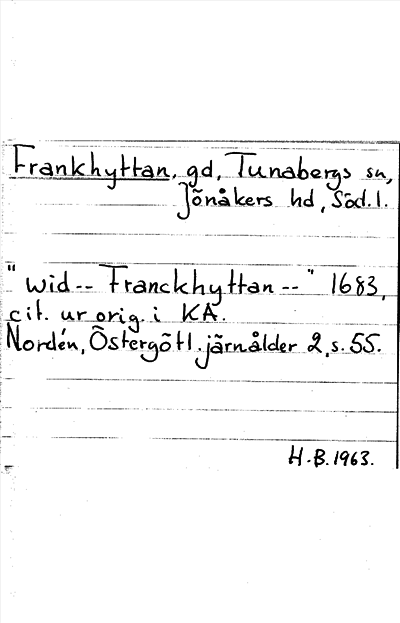 Frankhyttan, gd, Tunabergs sn,
Jönåkers hd, Söd.l.
"wid -- Franckhyttan --" 1683,
cit. ur orig. i KA.
Nordén, Östergötl. järnålder 2, s. 55.
H.B. 1963.